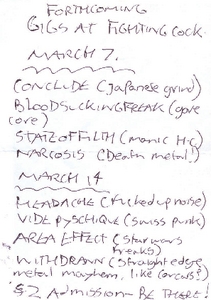 FORTHCOMING
GIGS AT FIGHTING COCK.
MARCH 7.
CONCLUDE (Japanese grind)
BLOODSUCKING FREAK (gore
core)
STATE OF FILTH (manic H.C)
NARCOSIS (Death metal!)
MARCH 14
HEADACHE (fucked up noise)
VIDE PYSCHIQUE (Swiss punk)
AREA EFFECT (Star wars
freaks)
WITHDRAWN (straight edge
metal mayhem, like Carcass!
£2 Admission - BE THERE!